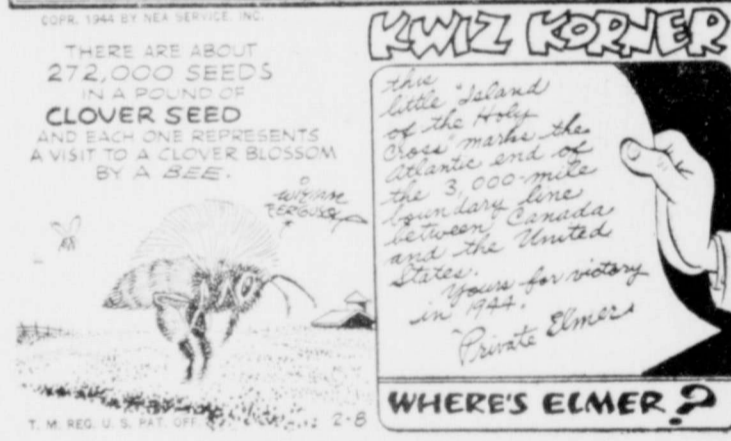 COPR. 1944 BY NEA SERVICE, INC.
THERE ARE ABOUT
272,000 SEEDS
IN A POUND OF
CLOVER SEED
AND EACH ONE REPRESENTS
A VISIT TO A CLOVER BLOSSOM
BY A BEE.
WILLIAM
FERGUSON
T. M. REG. U. S. PAT. OFF.
2-8
KWIZ KORNER
this
little "Island
of the Holy
Cross" marks the
Atlantic end of
the 3,000-mile
boundary line
between Canada
and the United
States.
Yours for victory
in 1944.
"Private Elmer"
WHERE'S ELMER?